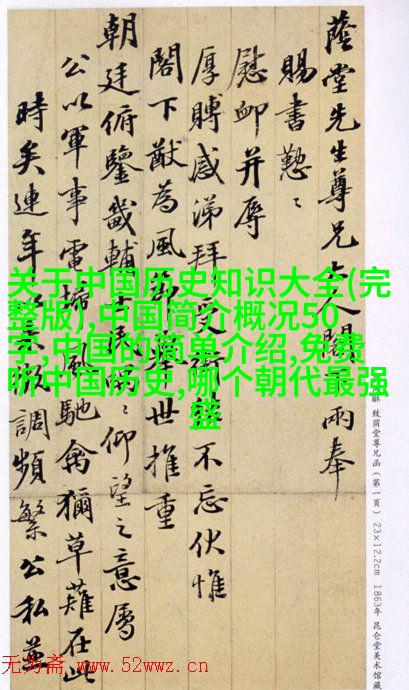 蔭堂先生尊兄大人閣 兩奉
賜書懃〻
慰卹并辱
厚賻感涕拜受 不忘伏惟
閣下猷為風 世推重
朝廷俯鑒畿輔 〻仰望之意屬
公以軍事電掃風馳禽獮草薙在此
時矣連年 調頻繁公私並
关于中国历史知识大全(完
整版),中国简介概况50
字,中国的简单介绍,免费
听中国历史,哪个朝代最强
盛
致荫堂尊兄函（第一頁） 23×12.2cm 1863年 昆仑堂美术馆藏
无为斋 www.52wwz.cn